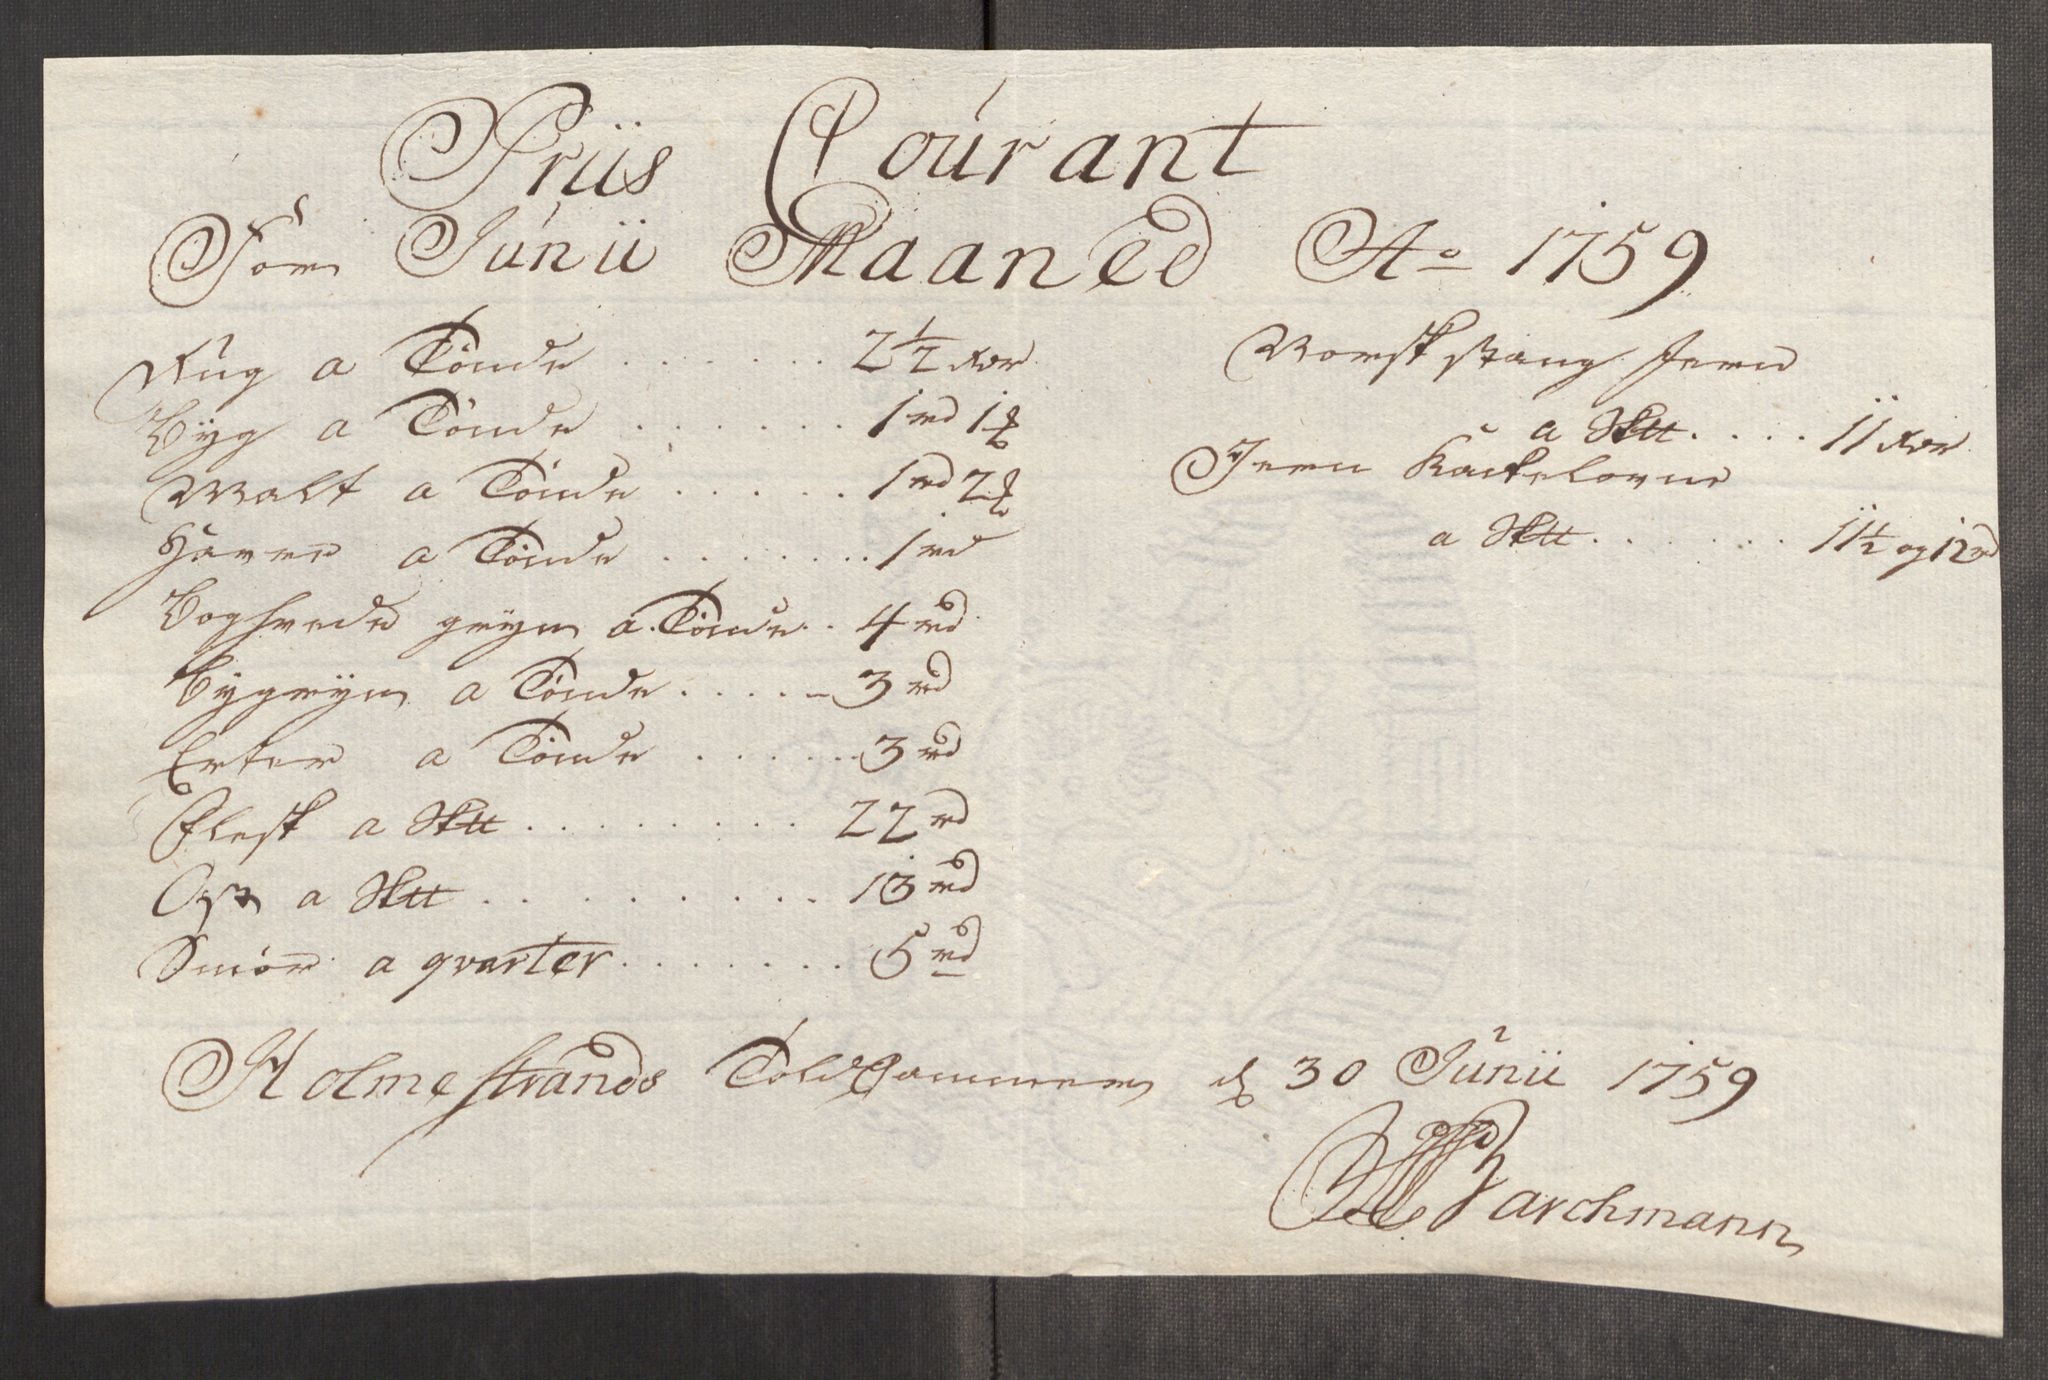 Priis Courant
For Junii Maaned Ao 1759
Rug a Tönde . . . . . . 2 1/2 rdr
Byg a Tönde . . . . . . . 1 rd 1 ℔
Malt a Tönde . . . . . 1 rd 2 ℔
Haver a Tönde . . . . . . . 1 rd
Boghvede gryn a Tönde . . 4 rd
Bygryn a Tönde . . . . . 3 rd
Erter a Tönde . . . . . . 3 rd
Flesk a Sktt . . . . . . . . 22 rd
Ost a Sktt . . . . . . . . . 13 rd
Smör a qvarter . . . . . . . 5 rd
Norsk stang Jern
a Sktt . . . . 11 rdr
Jern Kackelovne
a Sktt . . . . . . 11 1/2 og 12 rd
Holmestrands Told Cammer d 30 Junii 1759
Barchmann